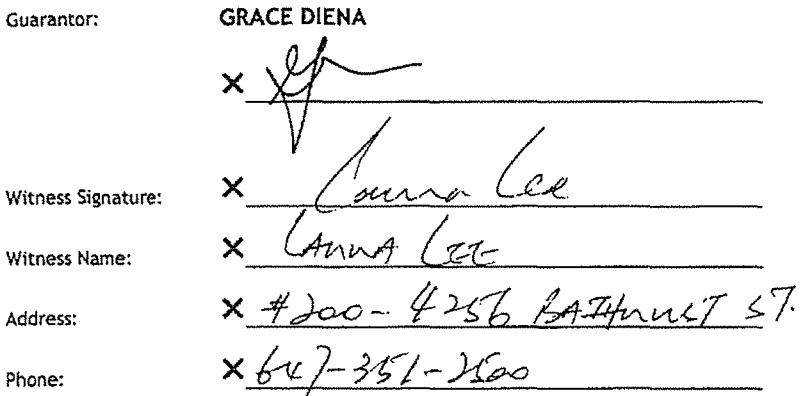 Guarantor: GRACE DIENA
×
Witness Signature: × Lanna Lee
Witness Name: × LANNA LEE
Address: × #200-4256 BATHURST ST.
Phone: × 647-351-2500